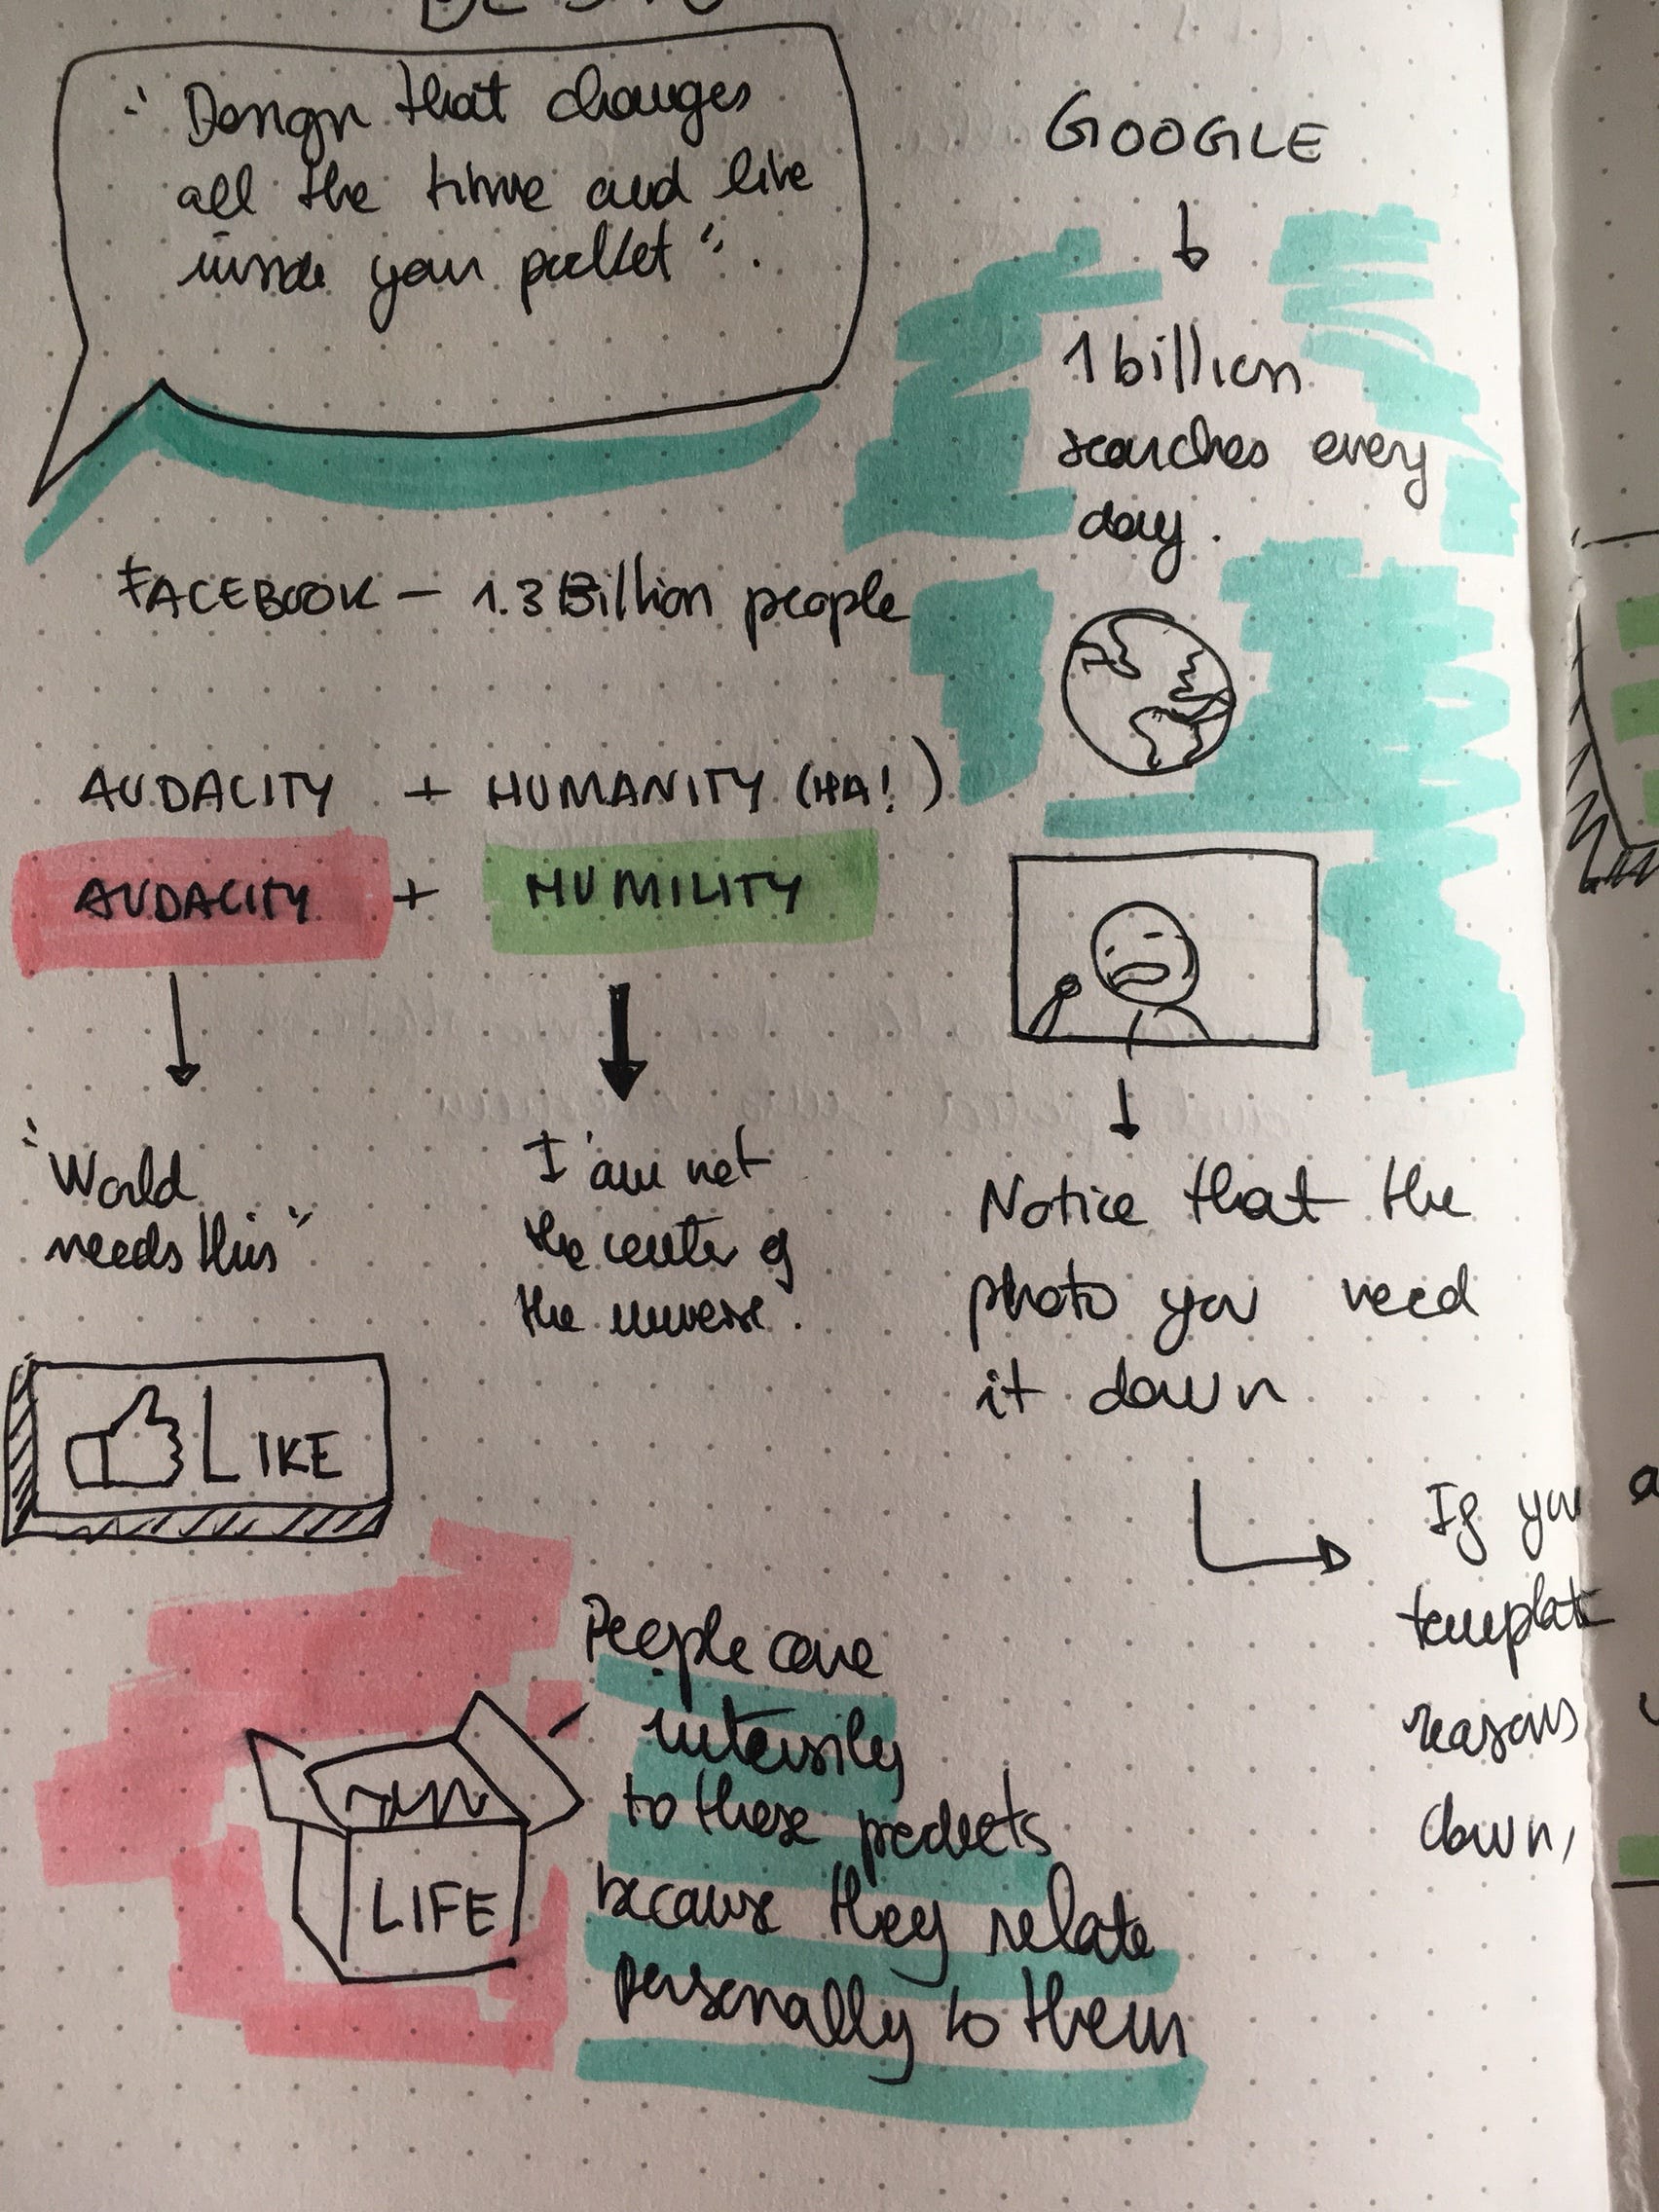 " Design that changes
all the time and live
inside your pocket ".
FACEBOOK - 1.3 Billion people
AUDACITY + HUMANITY (HA!)
AUDACITY + HUMILITY
"World
needs this"
I am not
the center of
the universe.
LIKE
LIFE
People care
intensily
to these products
because they relate
personally to them
GOOGLE
1 billion
searches every
day.
Notice that the
photo you need
it down
If you
template
reasons
down,